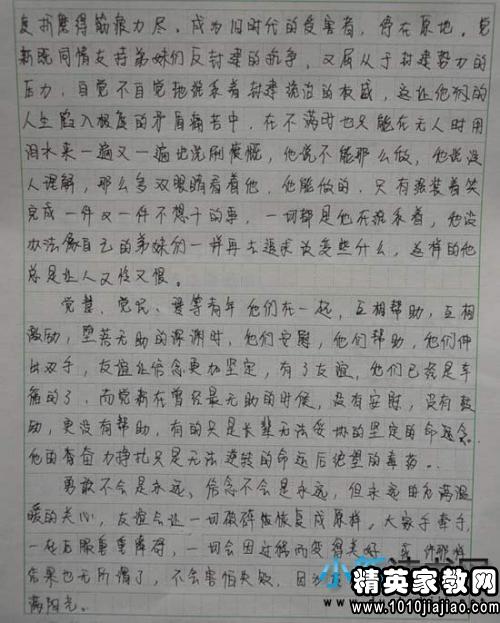 复折磨得筋疲力尽。成为旧时代的受害者,停在原地。觉
新既同情支持弟妹们反封建的抗争,又屈从于封建势力的
压力,自觉不自觉地维系着封建统治的权威,这让他们的
人生陷入极度的矛盾痛苦中,在不满时也只能在无人时用
泪水来一遍又一遍地洗刷懊恨,他说不能那么做,他说没
人理解,那么多双眼睛看着他,他能做的,只有强装着笑
完成一件又一件不想干的事,一切都是他在维系着,他没
办法像自己的弟妹们一样再去追求改变些什么,这样的他
总是让人又怜又恨。
觉慧、觉民、琴等青年他们在一起,互相帮助,互相
激励,坠落无助的深渊时,他们安慰,他们帮助,他们伸
出双手,友谊让信念更加坚定,有了友谊,他们已经是幸
福的了,而觉新在曾经最无助的时候,没有安慰,没有鼓
励,更没有帮助,有的只是长辈无法妥协的坚定的命运念,
他的奋力挣扎只是无法逆转的命运后绝望的毒药。
勇敢不会是永远,信念不会是永远,但永远因为有温
暖的关心,友谊会让一切破碎恢复成原样。大家手牵手,
一起克服重重障碍,一切会因友情而变得美好
结果也无所谓了,不会害怕失败,因为
满阳光。
精英家教网
www.1010jiajiao.com